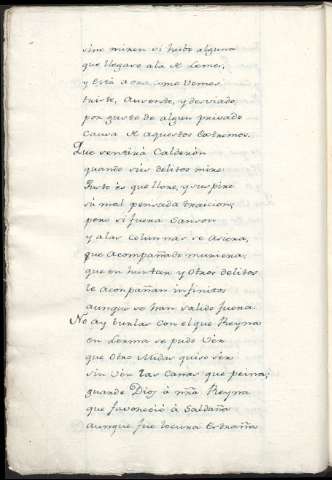 sino miren si hubo alguno
que llegase ala de Lemos,
y está aora como vemos
triste, Ausente, y desviado
por gusto de algun privado
causa de aquestos extremos.
Que sentirá Calderón
quando sus delitos mire
Justo es que llore, y suspire
su mal pensada traicion;
pero si fuera Sanson
y alas columnas se asiera,
que acompañado muriera,
que en hurtar y otros delitos
le acompañan infinitos
aunque se han valido fuera.
No ay burlas con el que Reyna
en Lerma se pudo ver
que otro Midas quiso ser
sin ver las canas que peina;
guarde Dios á nrã Reyna
que favoreció á Saldaña
aunque fue locura extraña